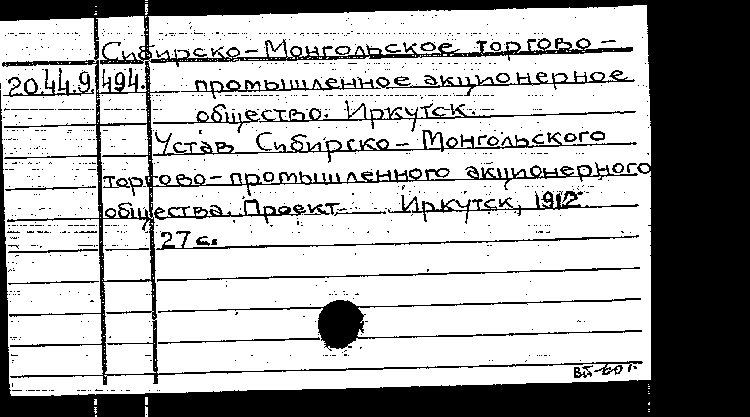 Сибирско-Монгольское торгово-
20.44.9.494. промышленное акционерное
общество. Иркутск.
Устав Сибирско-Монгольского
торгово-промышленного акционерного
общества. Проект. Иркутск, 1912
27 с.